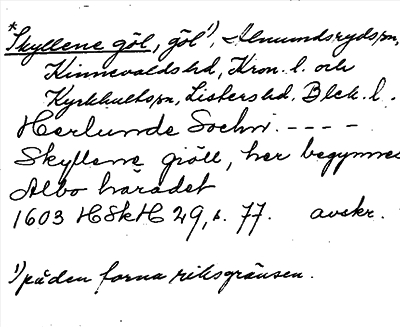 *Skyllene göl, göl¹), Almundsryds sn,
Kinnevalds hd, Kron. l. och
Kyrkhults sn, Listers hd. Blek. l.
Herlunde Sochn. ----
Skyllene giöll, her begynnes
Albo häradet
1603 HSkH 29, s. 77. avskr.
¹) på den forna riksgränsen.